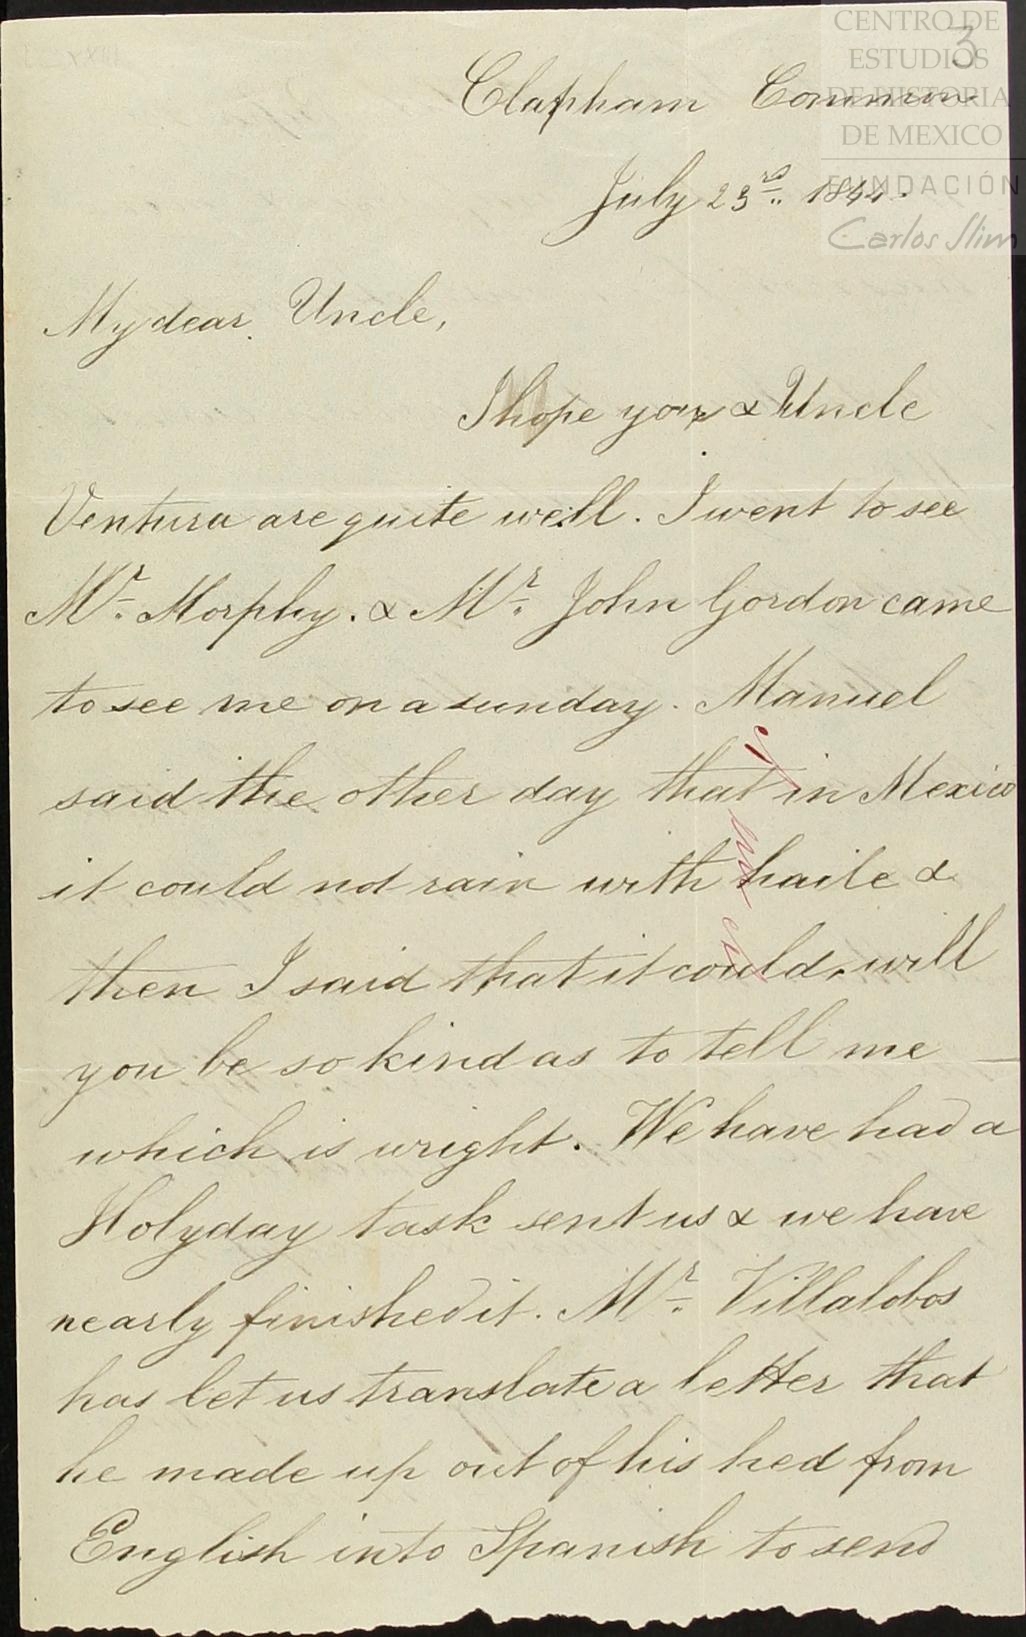 CENTRO DE
ESTUDIOS
DE HISTORIA
DE MEXICO
FUNDACIÓN
Carlos Slim
3
Clapham Common
July 23rd. 1844.
My dear Uncle,
I hope you & Uncle
Ventura are quite well. I went to see
Mr. Morphy. & Mr. John Gordon came
to see me on a sunday. Manuel
said the other day that in Mexico
it could not rain with haile &
then I said that it could, will
you be so kind as to tell me
which is wright. We have had a
Holyday task sent us & we have
nearly finished it. Mr. Villalobos
has let us translate a letter that
he made up out of his hed from
English into Spanish to send